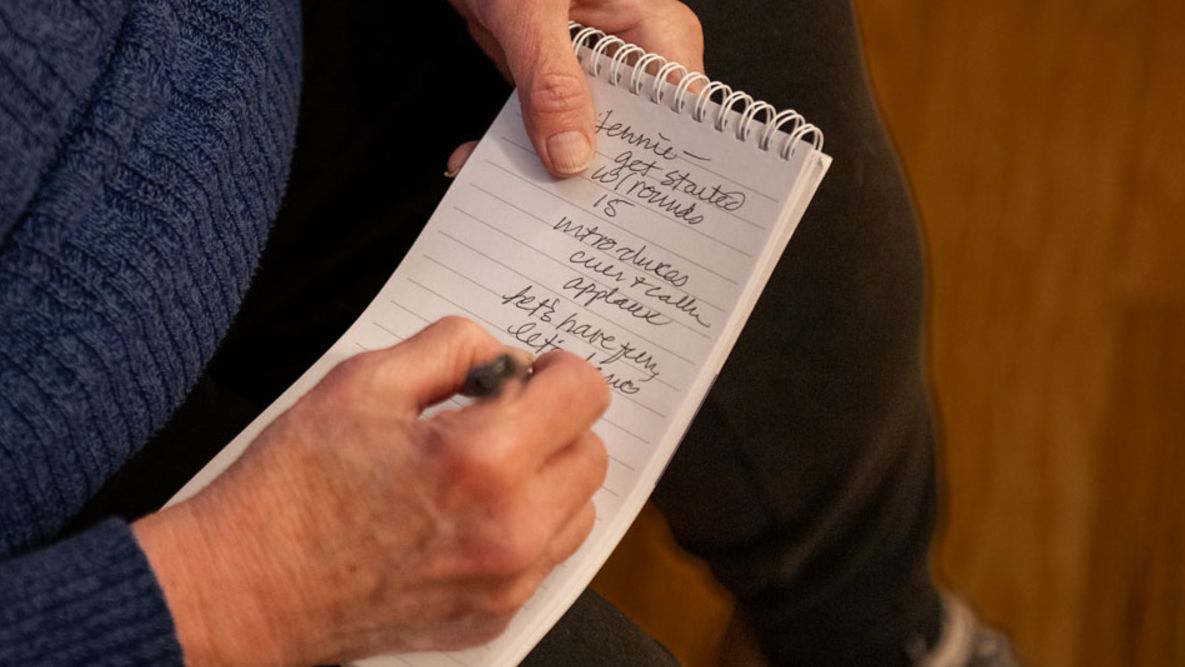 Jennie—
get started
w/ rounds
15
introduces
cuer + caller
applause
let's have fun,
let's